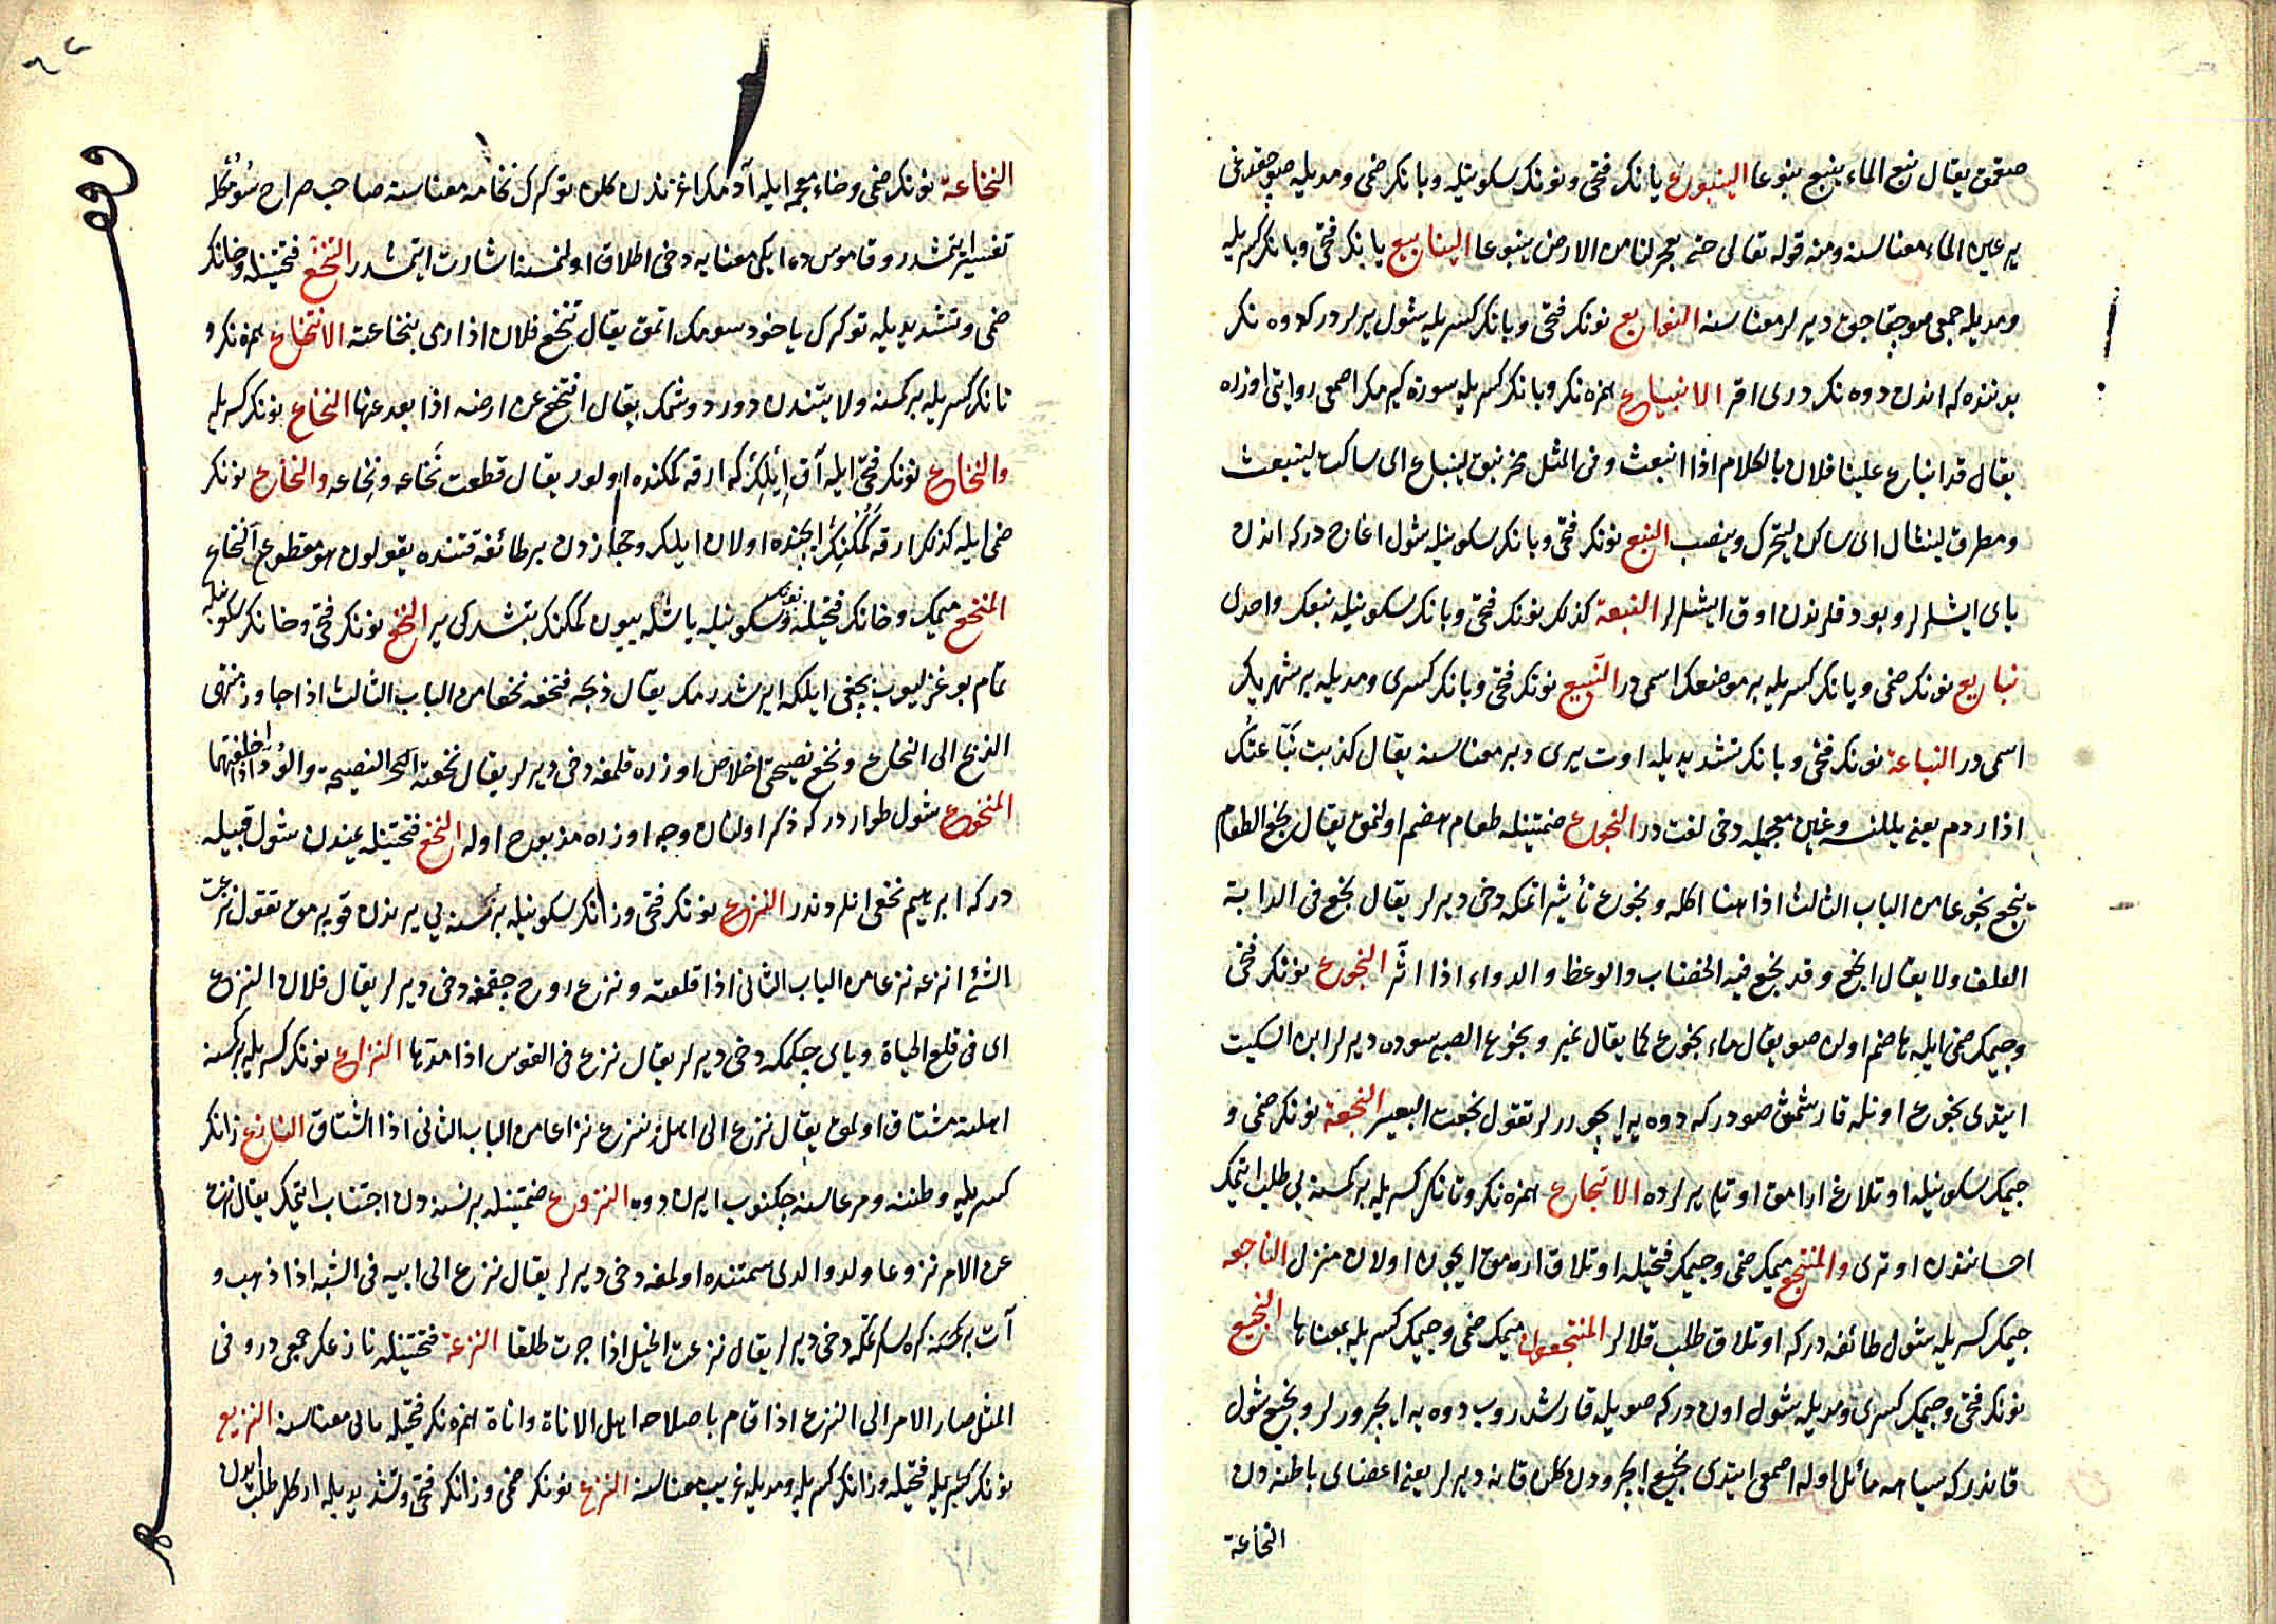 صقمق يقال نبع الماء ينبع نبوعا الينبوع يانك فتحى ونونك سكونيله وبانك ضمى ومديله صو چقدغى
ير عين الماء معناسنه ومنه قوله تعالى حتى تفجر لنا من الارض ينبوعا الينابيع يانك فتحى وبانك كسريله
ومديله جمعى صو چقاجق ديرلر معناسنه النوابع نونك فتحى وبانك كسريله شول يرلردر كه دوه نك
بدننده كه اندن دوه نك درى اقر الانبياع همزه نك وبانك كسريله سوزه كيرمك اصمعى روايتى اوزره
يقال قد انباع علينا فلان بالكلام اذا انبعث وفى المثل مخرنبق لينباع اى ساكت لينبعث
ومطرق لينثال اى ساكن ليتحرك وينصب النبع نونك فتحى وبانك سكونيله شول اغاج دركه اندن
ياى ايشلرلر وبوداقلرندن اوق ايشلرلر النبعة كذلك نونك فتحى وبانك سكونيله نبعك واحدى
نبايع نونك ضمى ويانك كسريله بر موضعك اسمى در النبيع نونك فتحى وبانك كسرى ومديله بر شهر يك
اسمى در النباعة نونك فتحى وبانك تشديديله اوت يرى دبر معناسنه يقال كذبت نباعتك
اذا ردم يعنى يللنسه وغين معجميله دخى لغت در النجوع ضمتينله طعام هضم اولنمق يقال نجع الطعام
ينجع نجوعا من الباب الثالث اذا هنا اكله ونجوع تأثير اتمكه دخى ديرلر يقال نجع فى الدابة
العلف ولا يقال انجع وقد نجع فيه الخضاب والوعظ والدواء اذا اثر النجوع نونك فتحى
وجيمك ضمى ايله هاضم اولن صو يقال ماء نجوع كما يقال نمير ونجوع الصبى سوده ديرلر ابن السكيت
ايتدى نجوع اونله قارشمش صودر كه دوه يه ايچوررلر تقول نجعت البعير النجعة نونك ضمى و
جيمك سكونيله اوتلاغ ارامق اوتلى يرلرده الانتجاع همزه نك وتانك كسريله بر كمسنه يى طلب ايتمك
احساننذن اوترى والمنتجع ميمك ضمى وجيمك فتحيله اوتلاق ارامق ايچون اولان منزل الناجعه
جيمك كسريله شول طائفه دركه اوتلاق طلب قلالر المنتجعون ميمك ضمى وجيمك كسريله بمعناها النجيع
نونك فتحى وجيمك كسرى ومديله شول اون دركه صويله قارشدروب دوه يه ايچوررلر ونجيع شول
قاندر كه سياهه مائل اوله اصمعى ايتدى نجيع ايچرودن كلن قانه ديرلر يعنى اعضاى باطنه دن
النخاعة
النخاعة نونك ضمى وخاء معجمه ايله آدمك اغزندن كلن توكرك نخامه معناسنه صاحب صراح سومكله
تفسير ايتمشدر وقاموس ده ايكى معنايه دخى اطلاق اولنمسنه اشارت ايتمشدر التنخع فتحتينله وخانك
ضمى وتشديديله توكرك ياخود سومك اتمق يقال تنخع فلان اذا رمى بنخاعته الانتخاع همزه نك و
تانك كسريله بر كمسنه ولايتندن دور دوشمك يقال انتخع عن ارضه اذا بعد عنها النخاع نونك كسريله
والنخاع نونك فتحى ايله آق ايلك كه ارقه كمكنده اولور يقال قطعت نخاعه ونخاعه والنخاع نونك
ضمى ايله كذلك ارقه كمكنك ايچنده اولان ايلك وحجازدن بر طائفه قتنده يقولون هو مقطوع النخاع
المنخع ميمك وخانك فتحيله ونونك سكونيله باشله بيون كمكنك بتشدكى ير النخع نونك فتحى وخانك سكونيله
تمام بوغزليوب بچغى ايلكه ايرشدرمك يقال ذبحه فنخعه نخعا من الباب الثالث اذا جاوز منتهى
الذبح الى النخاع ونخع نصيحتى اخلاص اوزره قلمغه دخى ديرلر يقال نخعته النصيحة والود اذا اخلصتهما
المنخوع شول طوار در كه ذكر اولنان وجه اوزره مذبوح اوله النخع فتحتينله يمندن شول قبيله
دركه ابرهيم نخعى انلردندر النزع نونك فتحى وزانك سكونيله بر نسنه يى يرندن قوپرمق تقول نزعت
الشئ انزعه نزعا من الباب الثانى اذا قلعته ونزع روح چقمغه دخى ديرلر يقال فلان النزع
اى فى قلع الحياة وياى چكمكه دخى ديرلر يقال نزع فى القوس اذا مدها النزاع نونك كسريله بر كمسنه
اهلنه مشتاق اولمق يقال نزع الى اهله ينزع نزاعا من الباب الثانى اذا اشتاق النازع زانك
كسريله وطننه ومرعاسنه چكنوب ايرن دوه النزوع ضمتينله بر نسنه دن اجتناب ايتمك يقال نزع
عن الامر نزوعا ولد والدى سمتنده اولمغه دخى ديرلر يقال نزع الى ابيه فى الشبه اذا ذهب و
آت بر كمسنه كره سكرتمكه دخى ديرلر يقال نزعت الخيل اذا جرت طلقا النزعة فتحتينله نازعك جمعى در وفى
المثل صار الامر الى النزعة اذا قام باصلاحه اهل الاناة واناة همزه نك فتحيله مانى معناسنه النزيع
نونك فتحيله وزانك كسريله ومديله غريب معناسنه النزع نونك ضمى وزانك فتحى وتشديديله اركك طلب ايدن